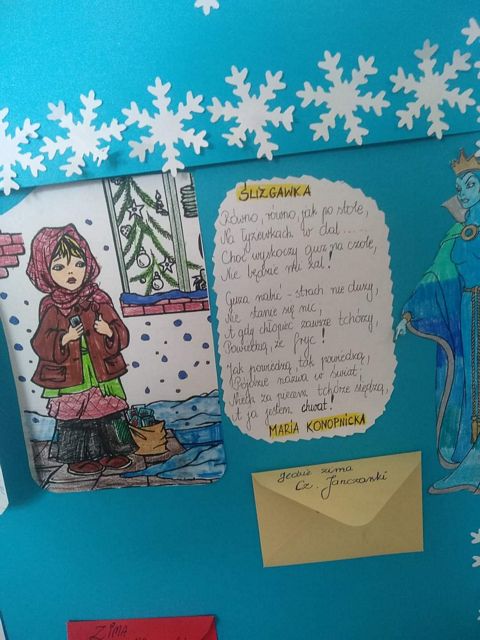 ŚLIZGAWKA
Równo, równo, jak po stole,
Na łyżewkach w dal.....
Choć wyskoczy guz na czole,
Nie będzie mi żal!
Guza nabić - strach nie duży,
Nie stanie się nic,
A gdy chłopiec zawsze tchórzy,
Powiedzą, że fryc!
Jak powiedzą, tak powiedzą,
Pójdzie nazwa w świat,
Niech za piecem tchórze siedzą,
A ja jestem chwat!
MARIA KONOPNICKA
Jedzie zima
Cz. Janczarski
ZIMA